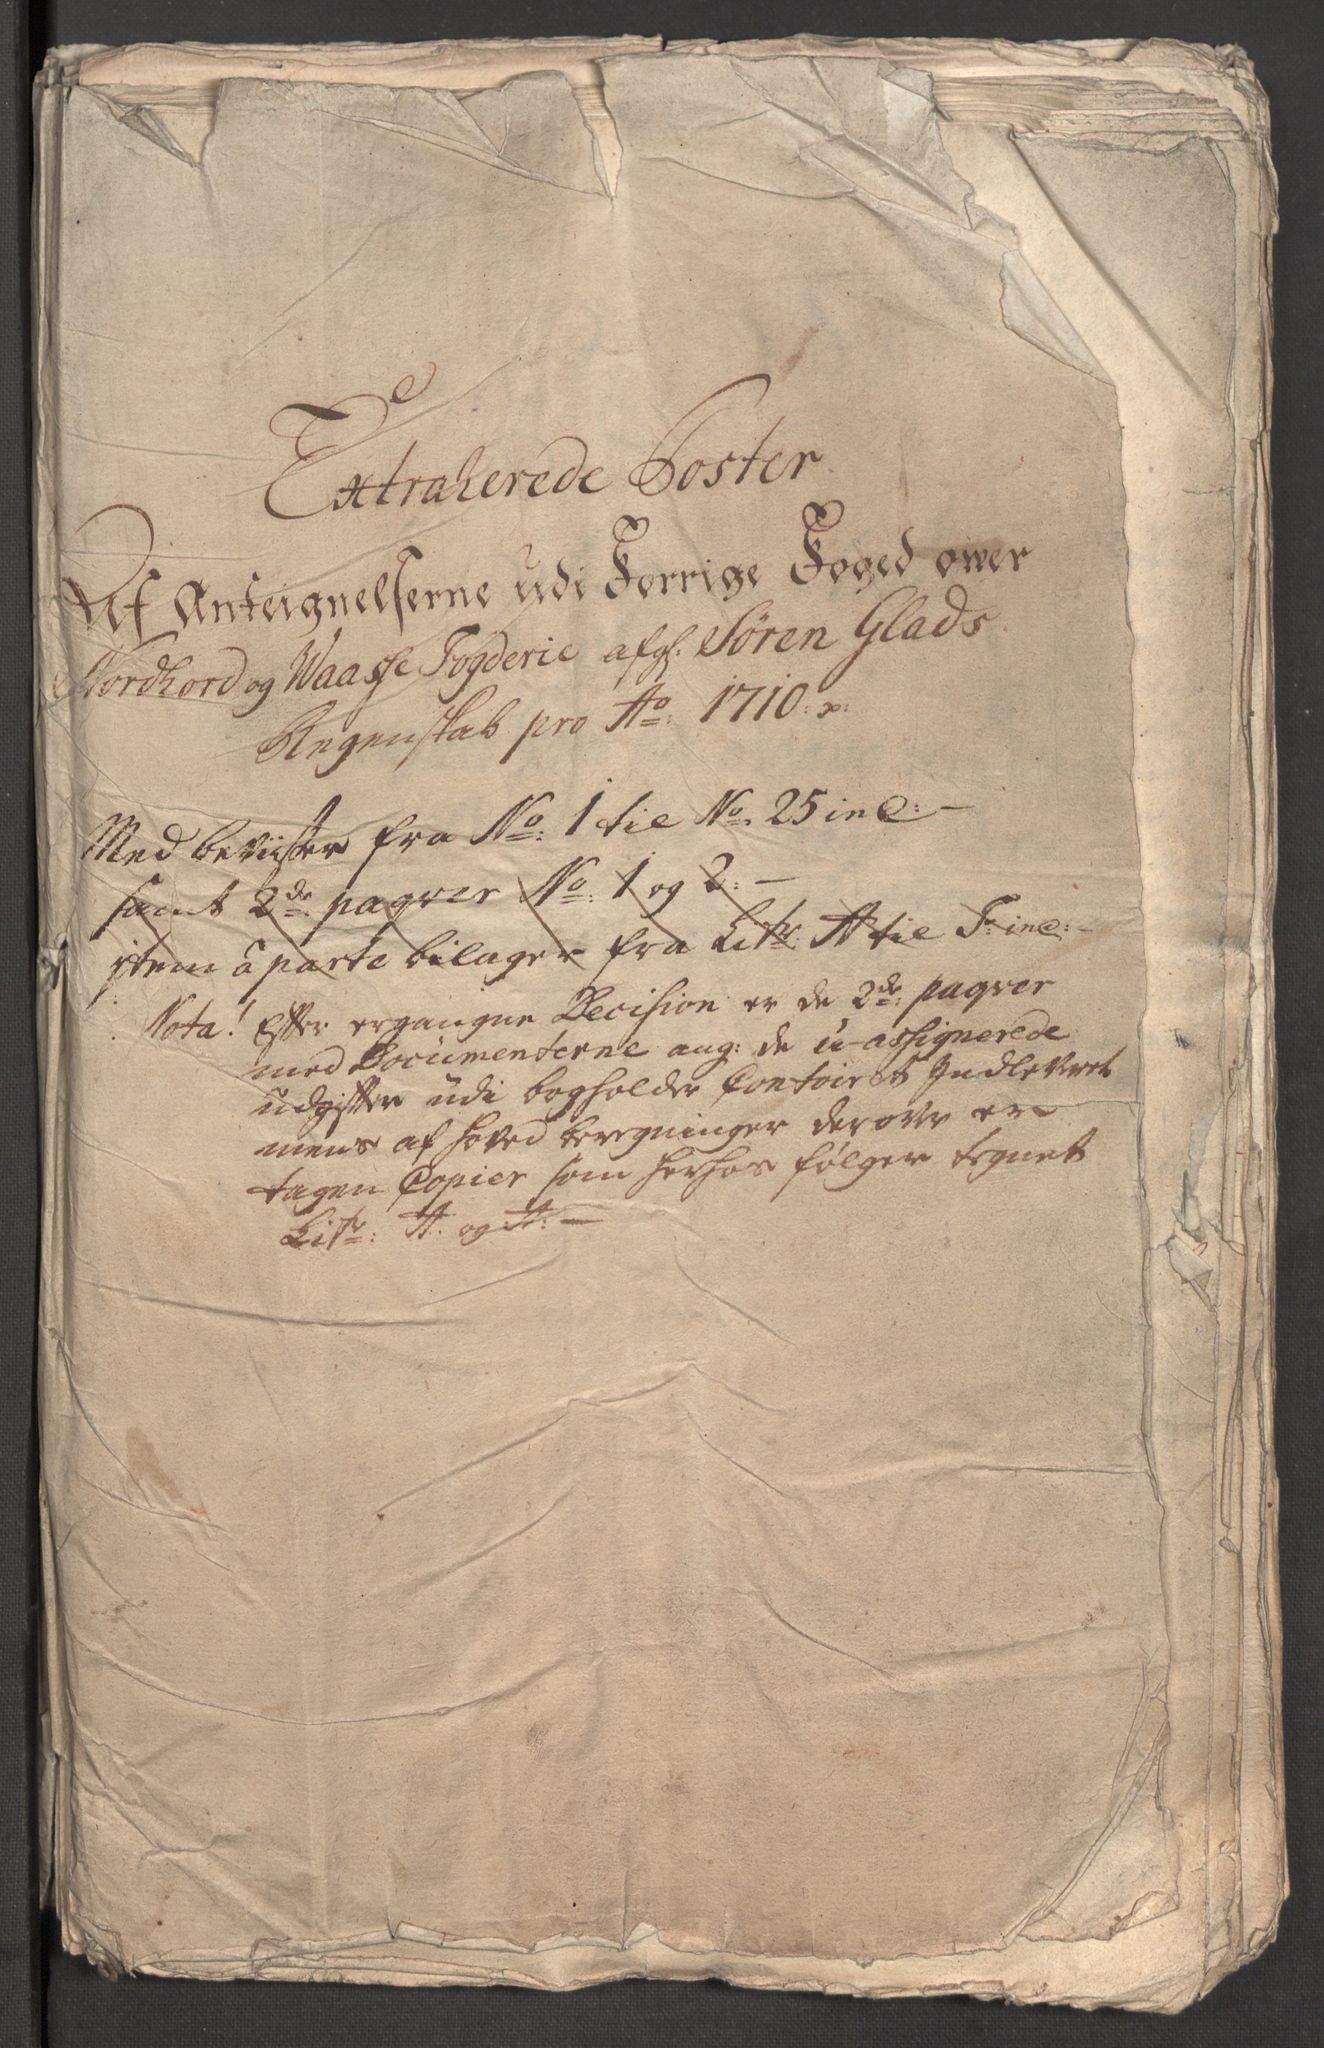 Extraherede Poster
Af Anteignelserne udi Forrige Foged ower
Nordhord og Waasse Fogderie afg: Søren Glads
Regenskab pro Ao: 1710:
Med beviister fra No: 1 til No. 25 incl: -
samt 2de: paqver No: 1 og 2: -
item á parte bilager fra Litr: A til F: incl: -
Nota! Efter ergangne Decision er de 2de: paqver
med Documenterne ang: de u-assignerede
udgifter udi bogholder Contoiret Indleveret
mens af hoved beregninger derover er
tagen Copier som herhos følger tegnet
Litr: A. og A: -